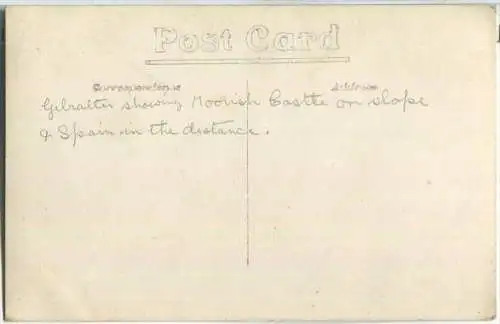 Post Card
Correspondence
Address
Gibralter showing Moorish Castle on slope
& Spain in the distance.